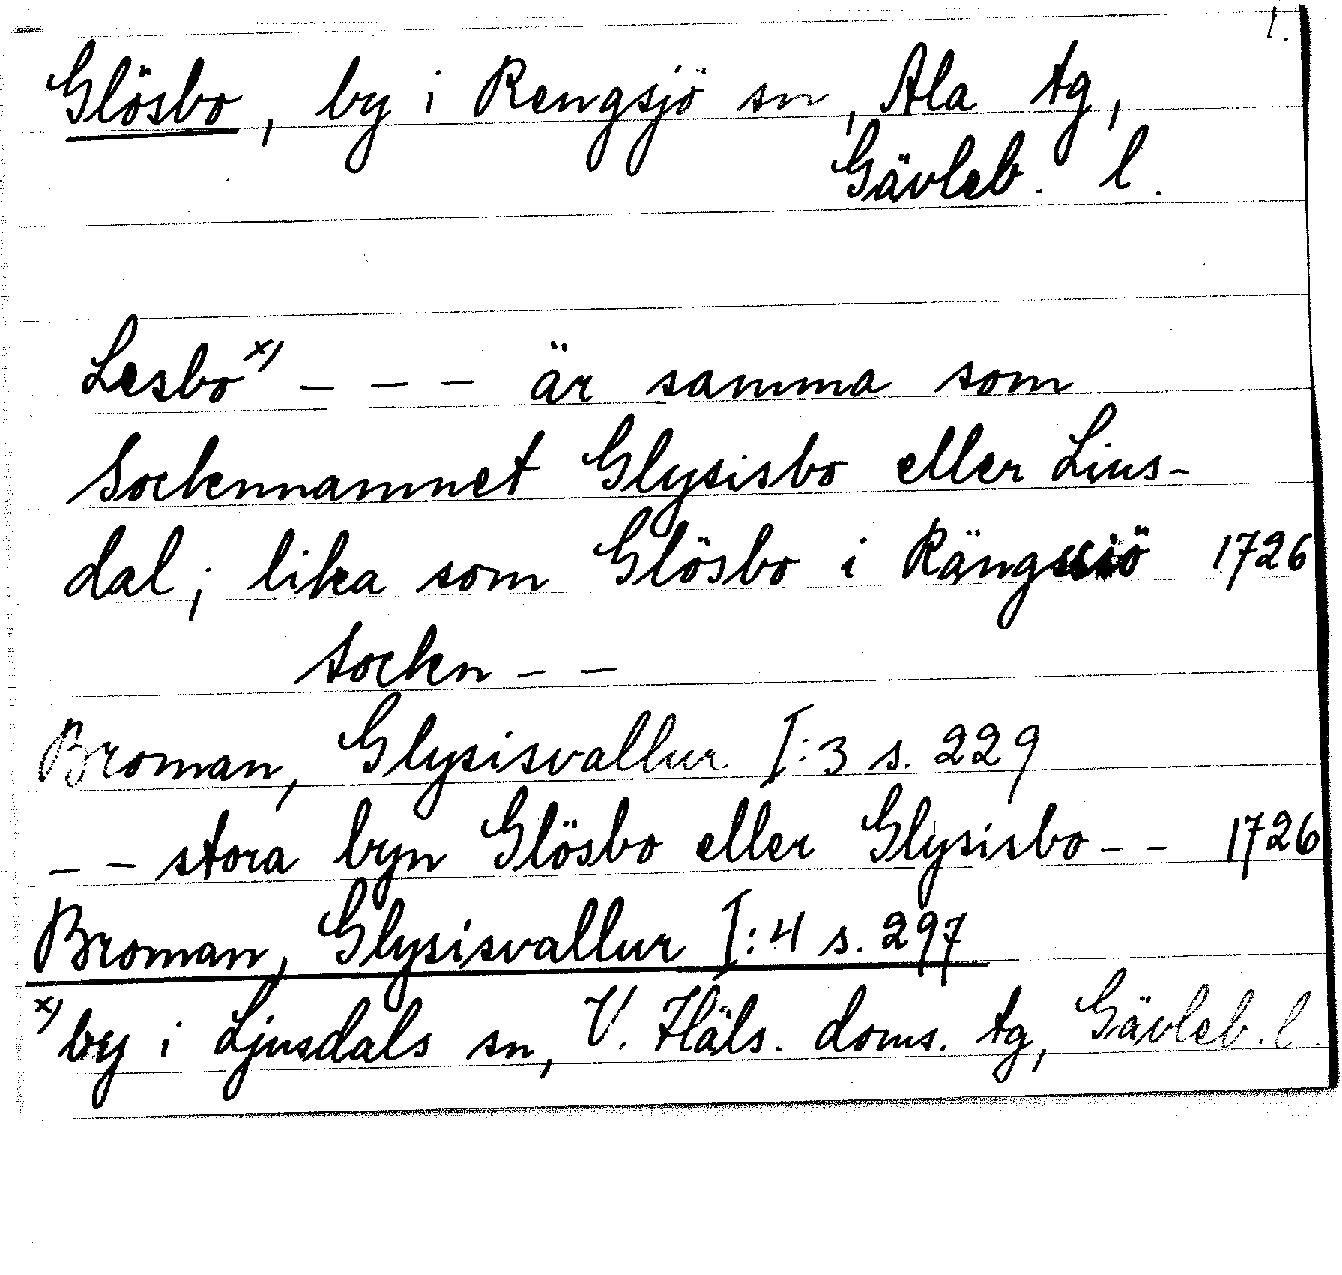 1.
Glösbo, by i Rengsjö sn, Ala tg,
Gävleb. l.
Lesbo x) - - - är samma som
Sockennamnet Glysisbo eller Lius-
dal; lika som Glösbo i Rängsiö 1726
Sockn - -
Broman, Glysisvallur I:3 s. 229
- - stora byn Glösbo eller Glysisbo - - 1726
Broman, Glysisvallur I:4 s. 297
x) by i Ljusdals sn, V. Häls. doms. tg, Gävleb. l.